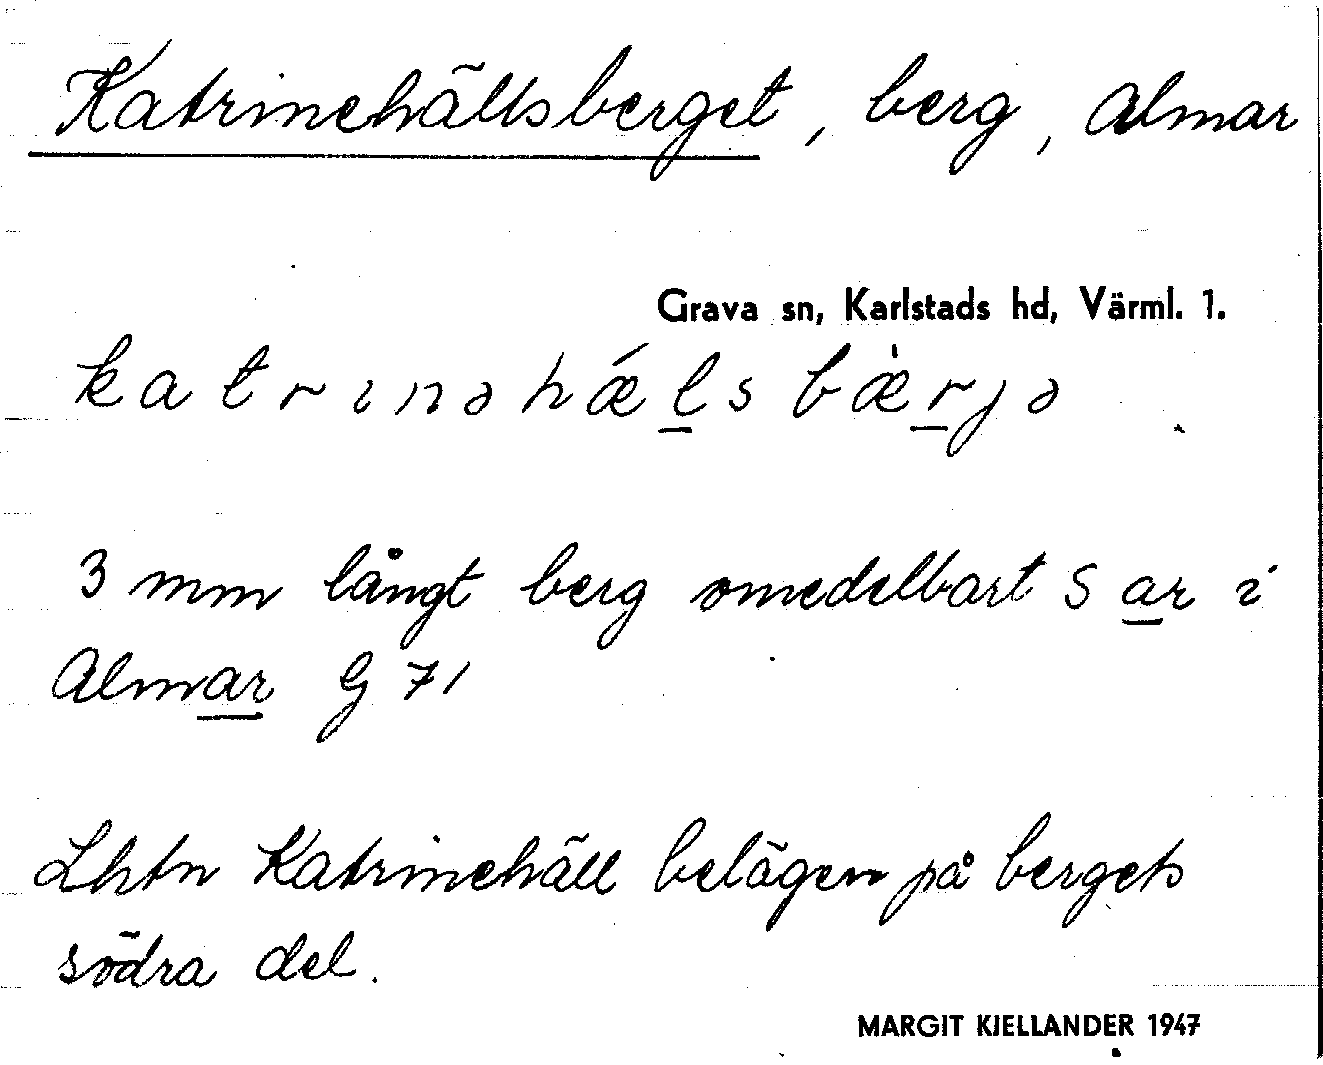 Katrinehällsberget, berg, Almar
Grava sn, Karlstads hd, Värml. 1.
katrinəhǽlsbæ̀rjə
3 mm långt berg omedelbart S ar i
Almar G 71
Lhtn Katrinehäll belägen på bergets
södra del.
MARGIT KJELLANDER 1947